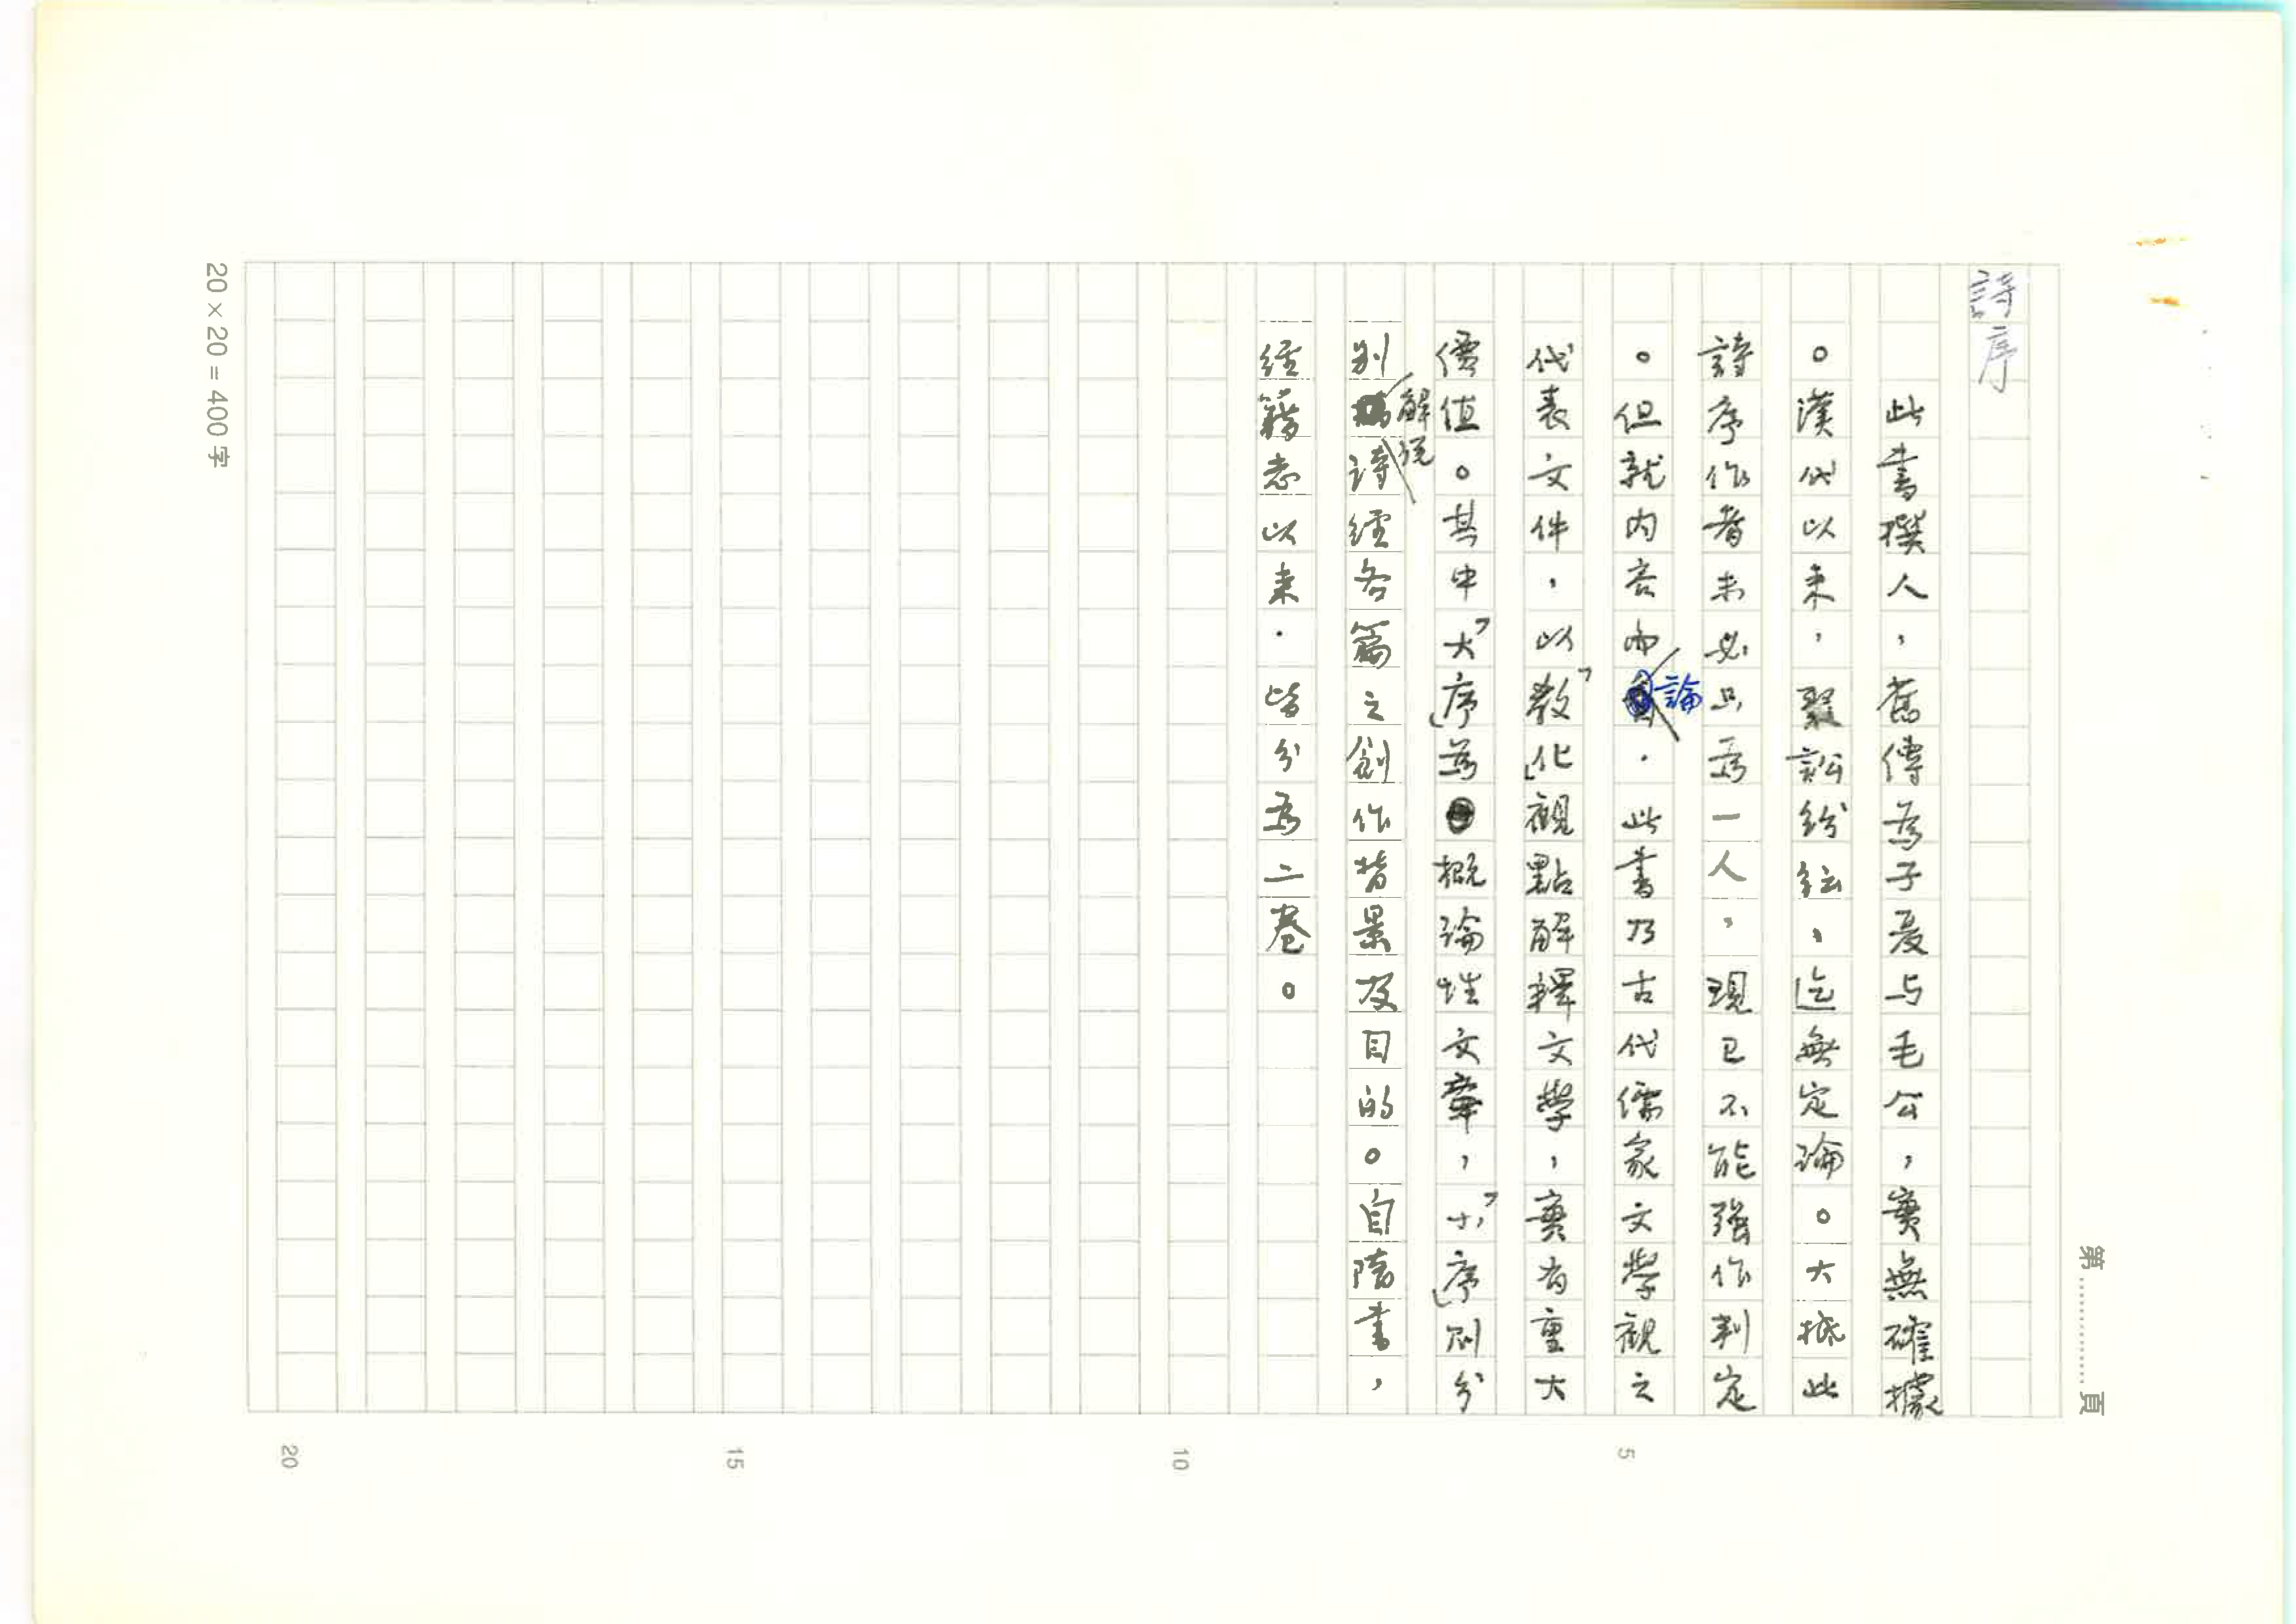 第…………頁
詩序
此書撰人，舊傳為子夏与毛公，實無確據
。漢代以來，聚訟紛紜，迄無定論。大抵此
詩序作者未必只為一人，現已不能強作判定
。但就內容而論，此書乃古代儒家文學觀之
代表文件，以「教化」觀點解釋文學，實有重大
價值。其中「大序」為概論性文章，「小序」則分
別解說詩經各篇之創作背景及目的。自隋書，
經籍志以來，皆分為二卷。
5
10
15
20
20×20=400字